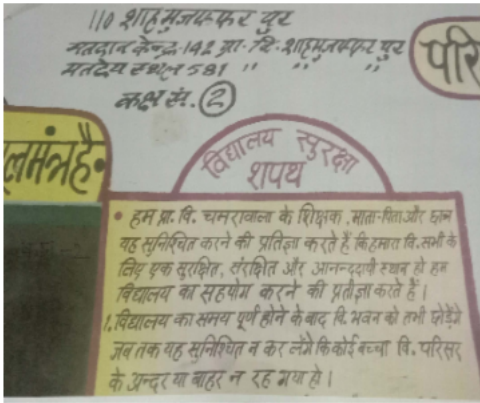 110 शाहमुजफ्फर पुर
मतदान केन्द्र 142 प्रा. वि. शाहमुजफ्फर पुर
मतदेय स्थल 581 " " " "
कक्ष सं. 2
परि
लमंत्र है
विद्यालय सुरक्षा
शपथ
• हम प्रा. वि. चमरावाला के शिक्षक, माता-पिता और छात्र
यह सुनिश्चित करने की प्रतिज्ञा करते हैं कि हमारा वि. सभी के
लिए एक सुरक्षित, संरक्षित और आनन्ददायी स्थान हो हम
विद्यालय का सहयोग करने की प्रतीज्ञा करते हैं।
1. विद्यालय का समय पूर्ण होने के बाद वि. भवन को तभी छोड़ेंगे
जब तक यह सुनिश्चित न कर लेंगे कि कोई बच्चा वि. परिसर
के अन्दर या बाहर न रह गया हो।